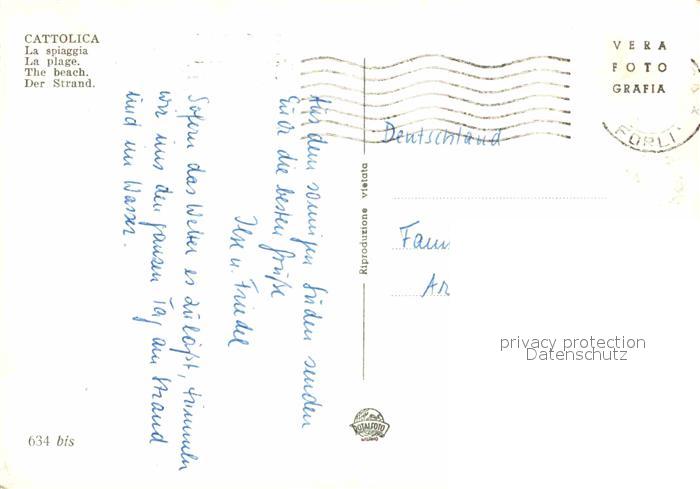 CATTOLICA
La spiaggia
La plage.
The beach.
Der Strand.
VERA
FOTO
GRAFIA
FORLI
Deutschland
Fam
Riproduzione vietata
Aus dem sonnigen Süden senden
Euch die besten Grüße
Ilse u. Friedel
Sofern das Wetter es zuläßt, tummeln
wir uns den ganzen Tag am Strand
und im Wasser.
privacy protection
Datenschutz
634 bis
ROTALFOTO
MILANO